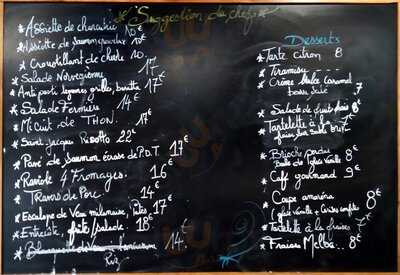 * Suggestion du chef *
* Assiette de charcuterie 10€
* Assiette de saumon gravlax 10€
* Croustillant de chèvre 10.
* Salade Norvégienne 17
* Anti pasti, legumes grillés, buratta 17€
* Salade Fermière 14€
* Mi Cuit de THON. 17€
* Saint Jacques Risotto 22€
* Pavé de Saumon écrasé de P.D.T 17€
* Raviole 4 Fromages. 16€
* Travers de Porc 14€
* Escalope de Veau milanaise, Pâtes 17€
* Entrecôte, frite/salade. 18€
* Blanquette de Veau à l'ancienne 14€
Riz
Desserts
* Tarte citron 8
* Tiramisu
* Crème brûlée Caramel
beurre salé 7
* Salade de fruit frais 8€
* Tartelette à la 7€
* Brioche perdue
Boule de glace vanille 8€
* Café gourmand 9€
* Coupe amaréna 8€
(glace vanille + Cerises confites)
* Tartelette à la fraises 7€
* Fraises Melba.. 8€